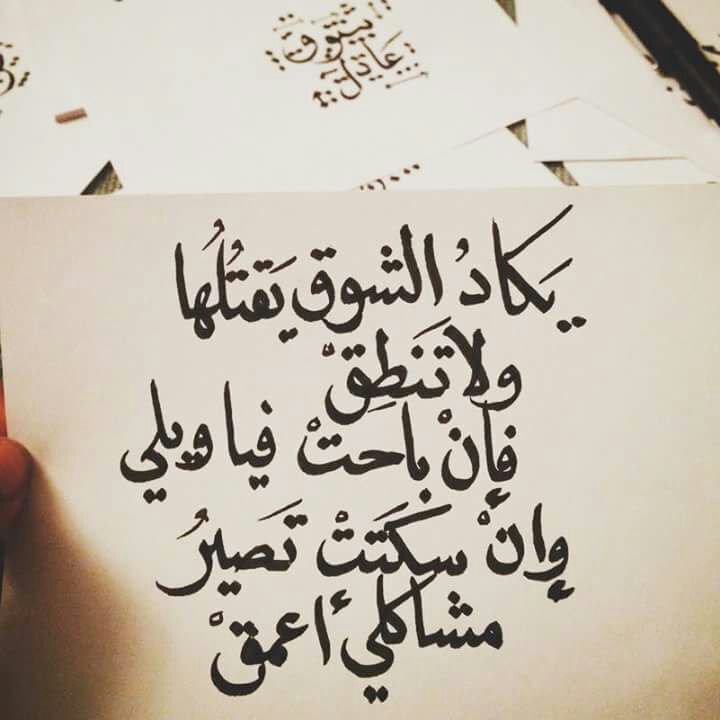 يَكادُ الشوق يَقتُلُها
ولا تَنَطِقْ
فإنْ باحتْ فيا ويلي
وإنْ سكتَتْ تَصيرُ
مشاكلي أعمقْ